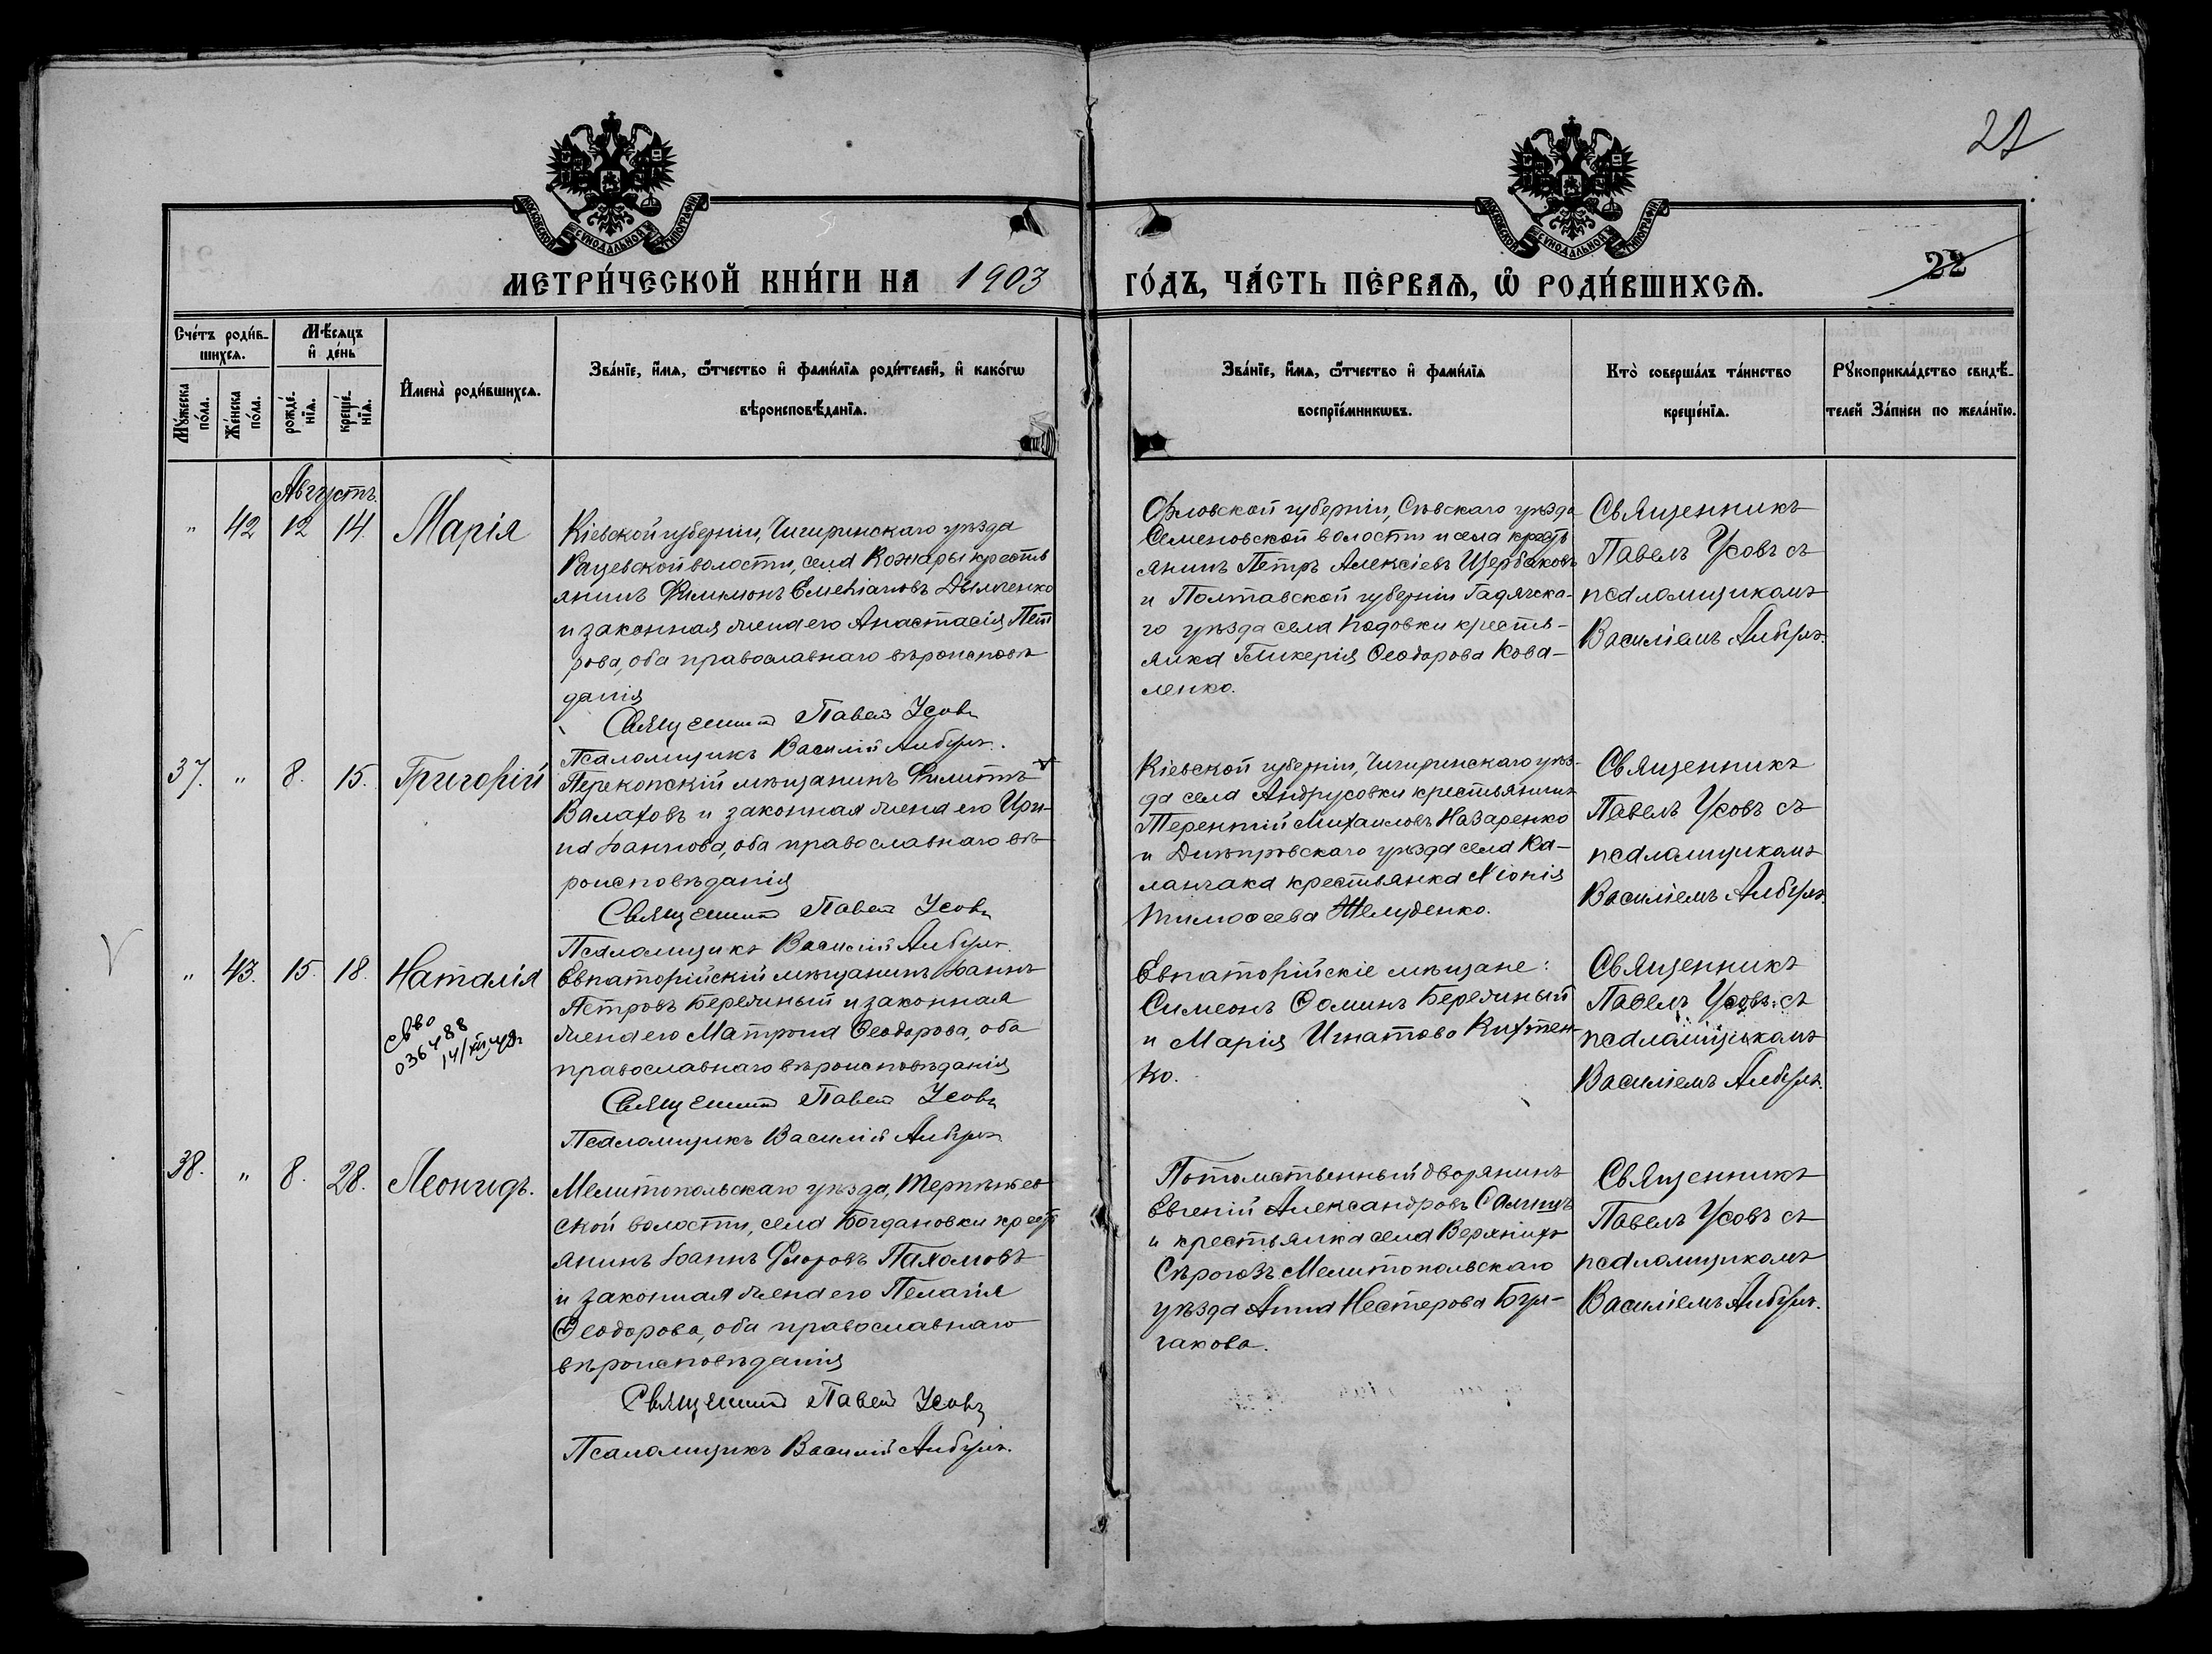 22
МОСКОВСКОЙ СѴНОДАЛЬНОЙ ТИПОГРАФІИ
МОСКОВСКОЙ СѴНОДАЛЬНОЙ ТИПОГРАФІИ
МЕТРИ́ЧЕСКОЙ КНИ́ГИ НА 1903 ГО́ДЪ, ЧА́СТЬ ПЕ́РВАѦ, Ѡ҆ РОДИ́ВШИХСѦ.
Сче́тъ роди́в-
шихсѧ.
Мꙋ́жеска
по́ла.
Же́нска
по́ла.
Мѣ́сѧцъ
и҆ де́нь
рожде́-
нїѧ.
креще́-
нїѧ.
И҆мена̀ роди́вшихсѧ.
Зва́нїе, и҆́мѧ, ѻ҆́тчество и҆ фами́лїѧ роди́телей, и҆ како́гѡ
вѣроисповѣ́данїѧ.
Зва́нїе, и҆́мѧ, ѻ҆́тчество и҆ фами́лїѧ
воспрїе́мникѡвъ.
Кто̀ соверша́лъ та́инство
креще́нїѧ.
Рꙋкоприкла́дство свидѣ́-
телей За́писи по жела́нїю.
Августъ.
" 42 12 14. Марія
Кіевской губерніи, Чигиринскаго уѣзда
Рацевской волости, села Кожары крестья
янинъ Филимонъ Емеліановъ Дымченко
и законная жена его Анастасія Пет
рова, оба православнаго вѣроисповѣ
данія
Священникъ Павелъ Усовъ
Псаломщикъ Василій
Орловской губерніи, Сѣвскаго уѣзда
Семеновской волости и села кресть
янинъ Петръ Алексіевъ Щербаковъ
и Полтавской губерніи Гадячска-
го уѣзда села крестья-
янка Гликерія Ѳеодорова Кова-
ленко.
Священникъ
Павелъ Усовъ съ
псаломщикомъ
Василіемъ
37. " 8. 15. Григорій
Перекопскій мѣщанинъ Филиппъ
Валаховъ и законная жена его Ири-
на Іоаннова, оба православнаго вѣ-
роисповѣданія
Священникъ Павелъ Усовъ
Псаломщикъ Василій
Кіевской губерніи, Чигиринскаго уѣз-
да села Андрусовки крестьянинъ
Терентій Михаиловъ Назаренко
и Днѣпровскаго уѣзда села Ка-
ланчака крестьянка
Тимоѳеева Желуденко.
Священникъ
Павелъ Усовъ съ
псаломщикомъ
Василіемъ
" 43. 15. 18. Наталія
Евпаторійскій мѣщанинъ Іоаннъ
Петровъ Бережный и законная
жена его Матрона Ѳеодорова, оба
православнаго вѣроисповѣданія
Священникъ Павелъ Усовъ
Псаломщикъ Василій
036488
Евпаторійскіе мѣщане:
Симеонъ Ѳоминъ Бережный
и Марія Игнатова Кихтен-
ко.
Священникъ
Павелъ Усовъ съ
псаломщикомъ
Василіемъ
38. " 8. 28. Леонидъ.
Мелитопольскаго уѣзда, Терпѣньев
ской волости, села Богдановки крест
янинъ Іоаннъ Флоровъ Пахомовъ
и законная жена его Пелагія
Ѳеодорова, оба православнаго
вѣроисповѣданія
Священникъ Павелъ Усовъ
Псаломщикъ Василій
Потомственный дворянинъ
Евгеній Александровъ
и крестьянка села Верхнихъ
Сѣрогозъ Мелитопольскаго
уѣзда Анна Нестерова Бул-
гакова.
Священникъ
Павелъ Усовъ съ
псаломщикомъ
Василіемъ